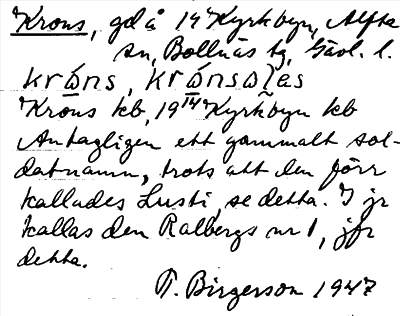 Krons, gd å 14 Kyrkbyn, Alfta
sn, Bollnäs tg, Gävl. l.
krώns, krώnsas
Krons kb, 19 14 Kyrkbyn kb
Antagligen ett gammalt sol-
datnamn, trots att den förr
kallades Lusti, se detta. I jr
kallas den Ralbergs nr 1, jfr
detta.
T. Birgerson 1947